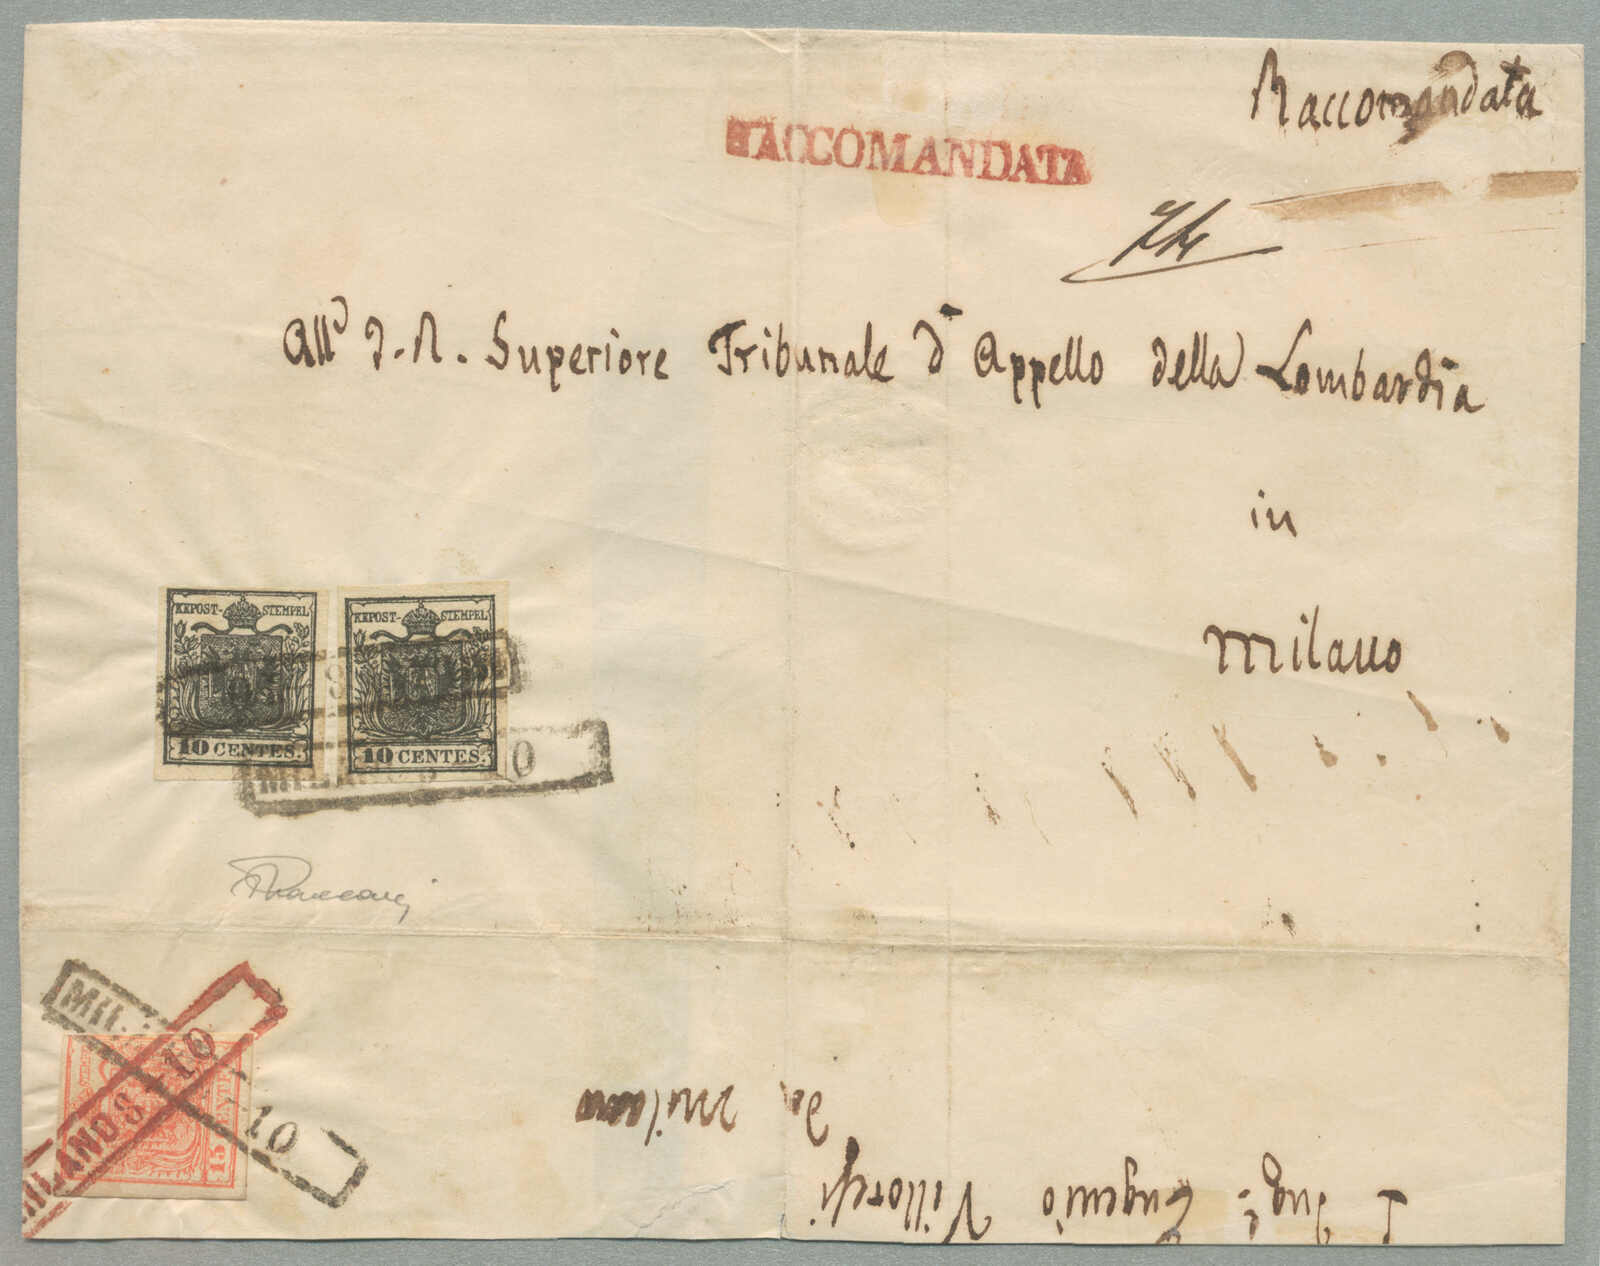 Raccomandata
RACCOMANDATA
All' I. R. Superiore Tribunale d' Appello della Lombardia
in
Milano
KKPOST-STEMPEL
10 CENTES.
KKPOST-STEMPEL
10 CENTES.
MILANO 8 10
MILANO 8 10
MIL 10
15 CENTES
da Milano
L' Ing.e Eugenio Villoresi